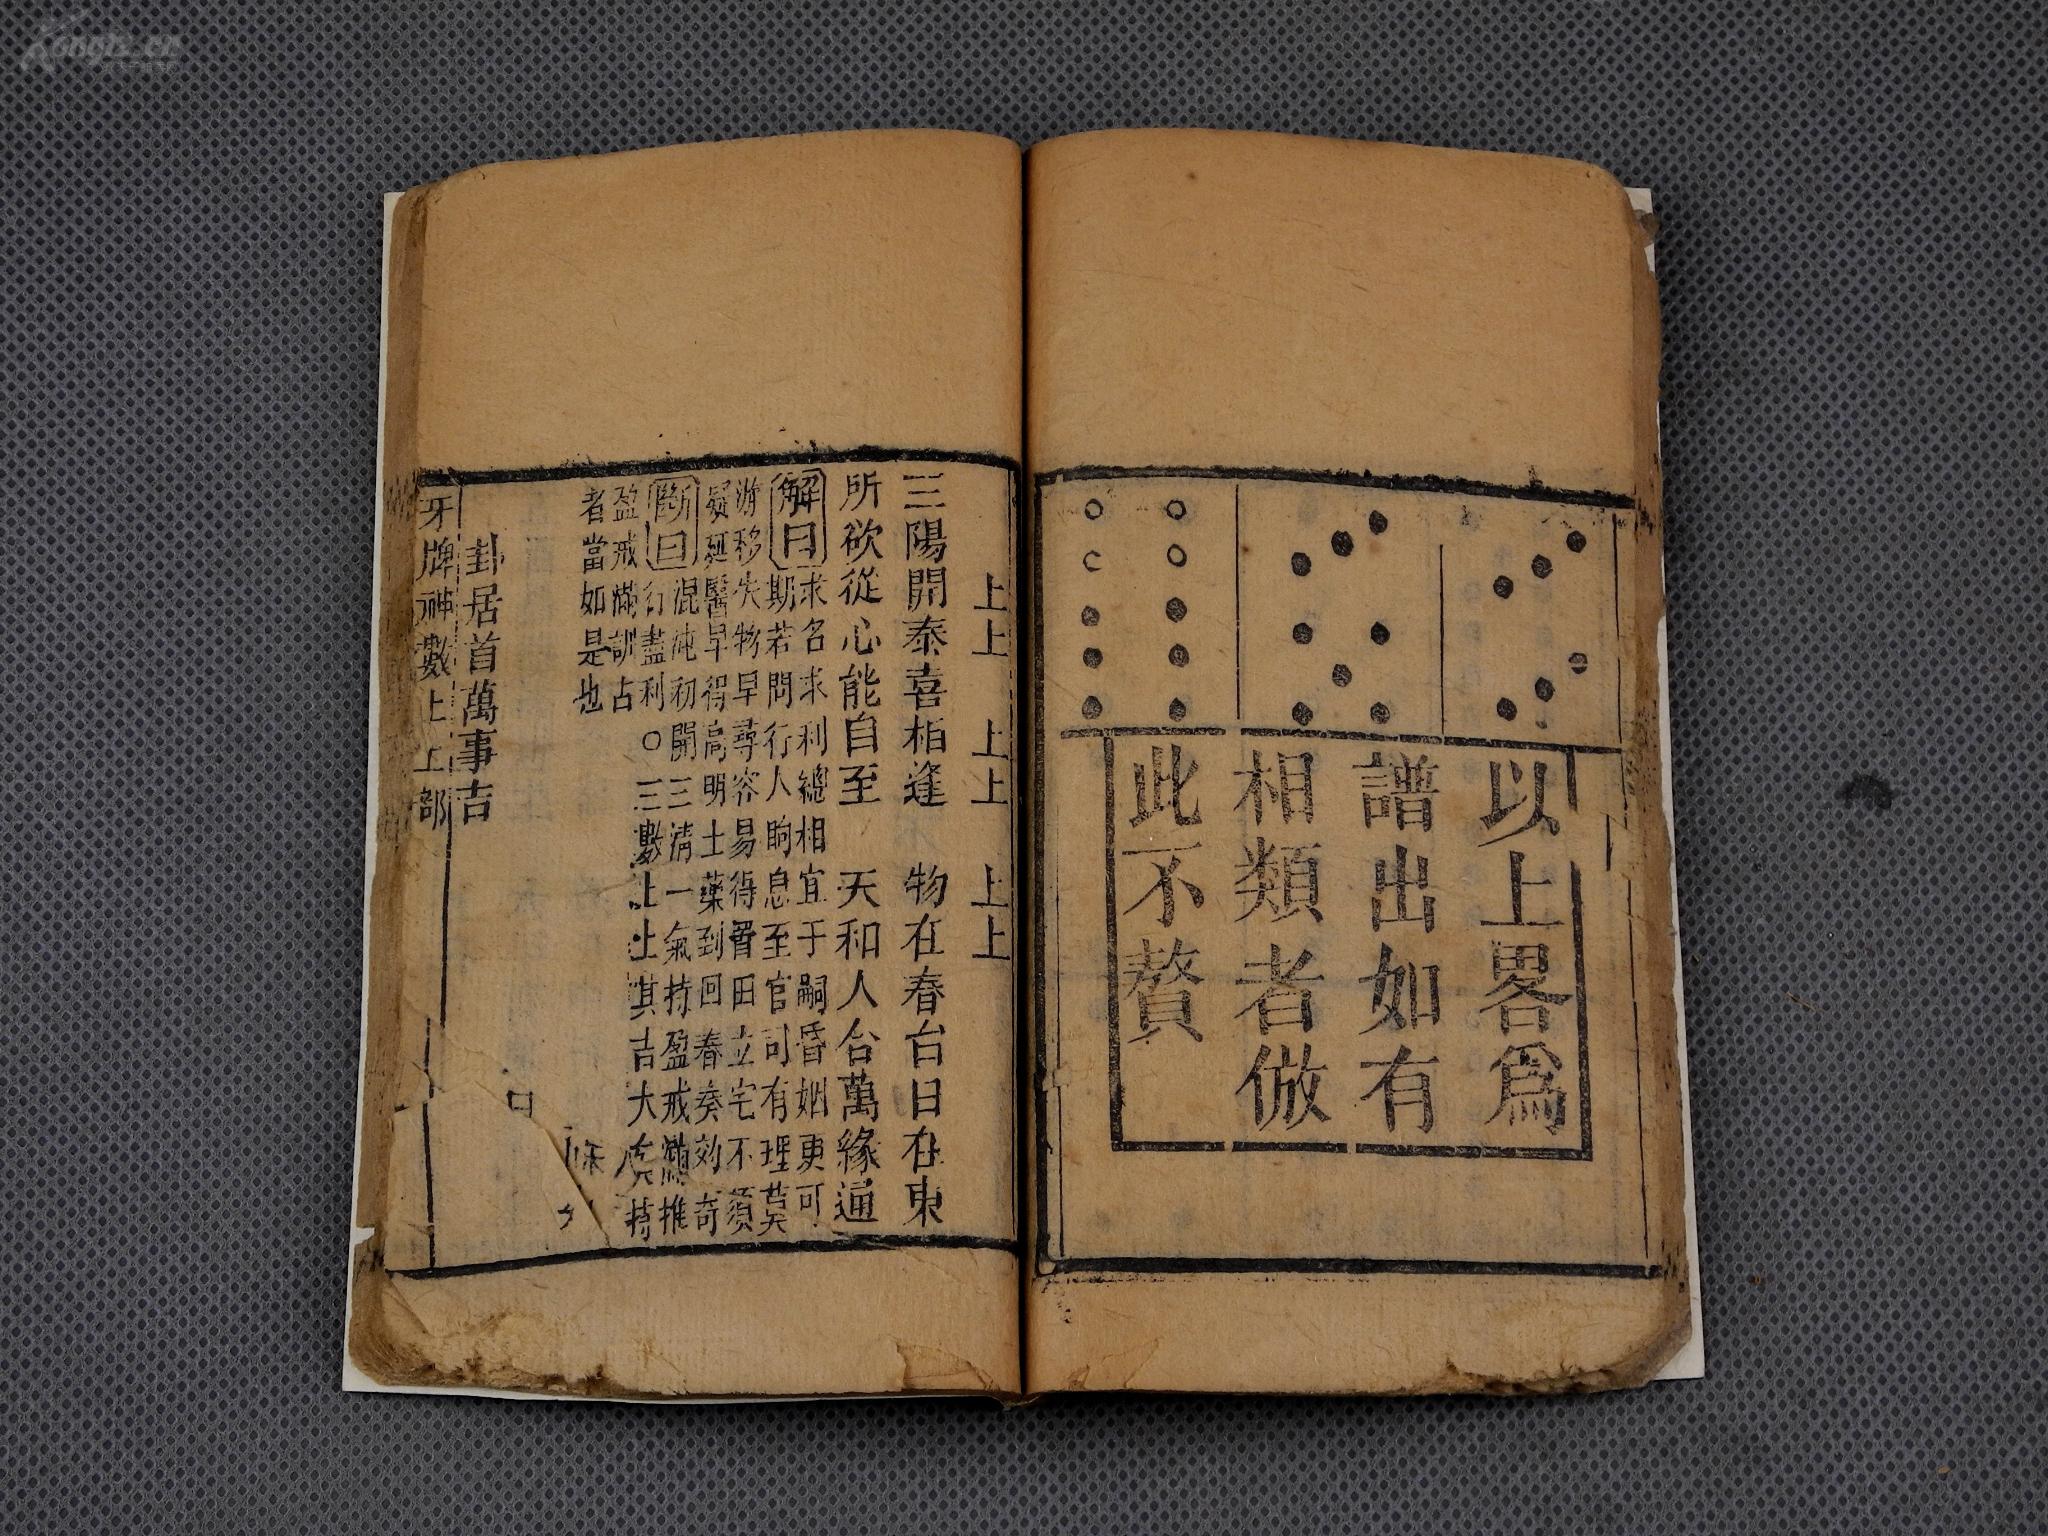 以上畧爲
譜出如有
相類者倣
此不贅
上上 上上 上上
三陽開泰喜相逢 物在春台日在東
所欲從心能自至 天和人合萬緣通
解曰
求名求利總相宜于嗣昏姻更可
期若問行人晌息至官司有理莫
游移失物早尋容易得置田立宅不須
疑延醫早得高明士藥到回春奏效奇
斷曰
混沌初開三清一氣持盈戒滿推
行盡利○三數上上其吉大矣持
盈戒滿訓占
者當如是也
卦居首萬事吉
牙牌神數上上部
Kongfz.cn